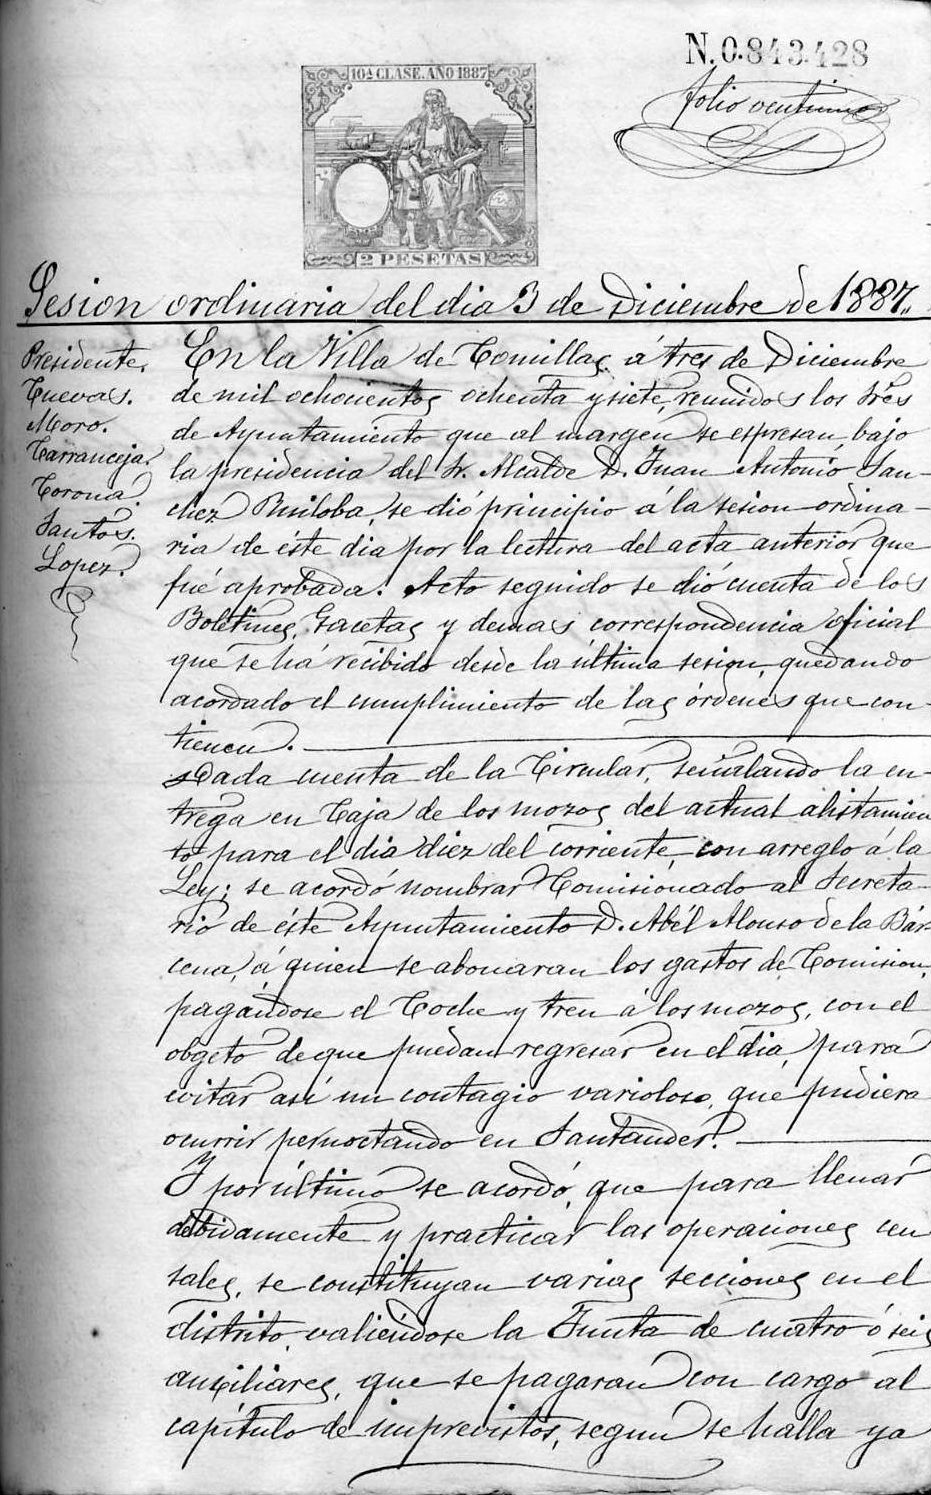 N. 0.843.428
folio veintiuno
10ª CLASE. AÑO 1887
2 PESETAS
Sesion ordinaria del dia 3 de Diciembre de 1887.
Presidente.
Cuevas.
Moro.
Carranceja.
Corona.
Santos.
Lopez.
En la Villa de Comillas á tres de Diciembre
de mil ochocientos ochenta y siete, reunidos los Sres
de Ayuntamiento que al margen se espresan, bajo
la presidencia del Sr. Alcalde D. Juan Antonio San-
chez Ruiloba, se dió principio á la sesion ordina-
ria de éste dia por la lectura del acta anterior que
fué aprobada. Acto seguido se dió cuenta de los
Boletines, Gacetas y demas correspondencia oficial
que se há recibido desde la última sesion, quedando
acordado el cumplimiento de las órdenes que con-
tienen.
Dada cuenta de la Circular, señalando la en-
trega en Caja de los mozos del actual alistamien
to para el dia diez del corriente, con arreglo á la
Ley; se acordó nombrar Comisionado al Secreta-
rio de éste Ayuntamiento D. Abél Alonso de la Bár-
cena, á quien se abonaran los gastos de Comision,
pagandose el Coche y tren á los mozos, con el
obgeto de que puedan regresar en el dia, para
evitar así un contagio varioloso, que pudiera
ocurrir pernoctando en Santander.
Y por último se acordó, que para llenar
debidamente y practicar las operaciones cen
sales, se constituyan varias secciones en el
distrito, valiendose la Junta de cuatro ó seis
auxiliares, que se pagaran con cargo al
capítulo de imprevistos, segun se halla ya